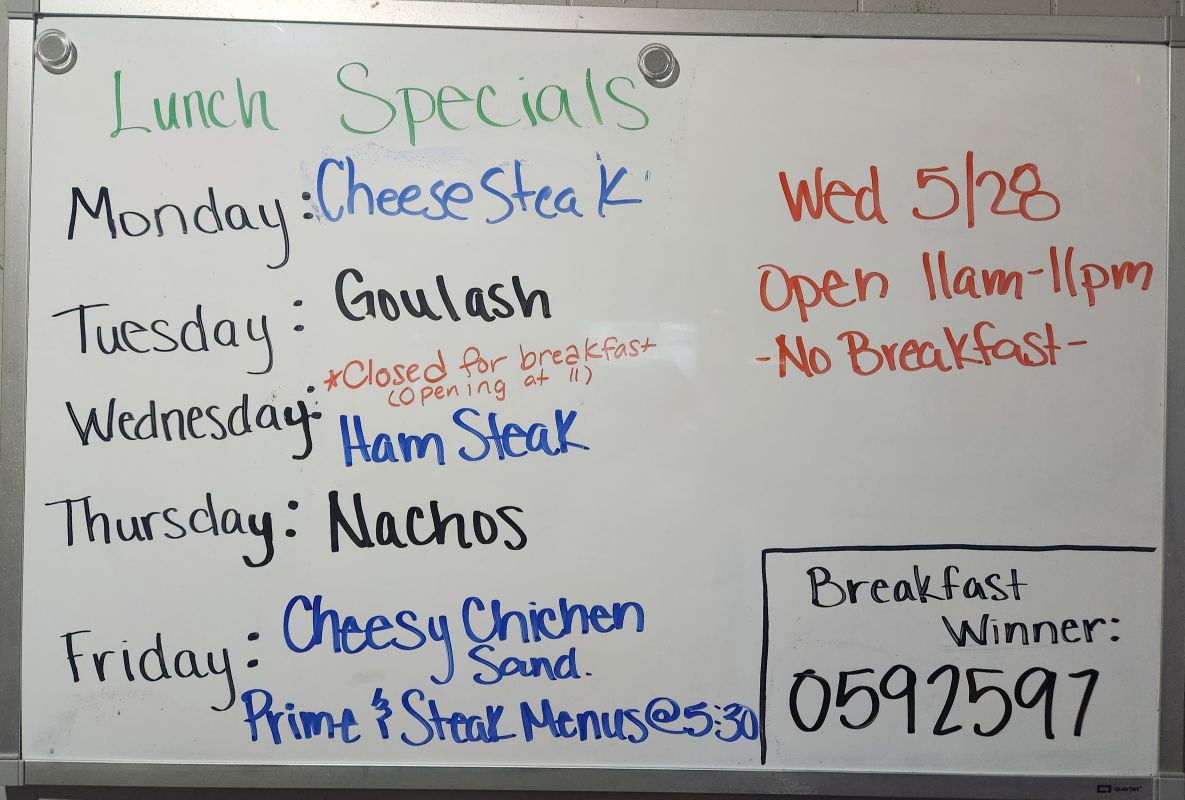 Lunch Specials
Monday: CheeseSteak
Tuesday: Goulash
*Closed for breakfast
(Opening at 11)
Wednesday:
Ham Steak
Thursday: Nachos
Friday: Cheesy Chichen
Sand.
Prime & Steak Menus@5:30
Wed 5/28
Open 11am-11pm
-No Breakfast-
Breakfast
Winner:
0592597
quartet